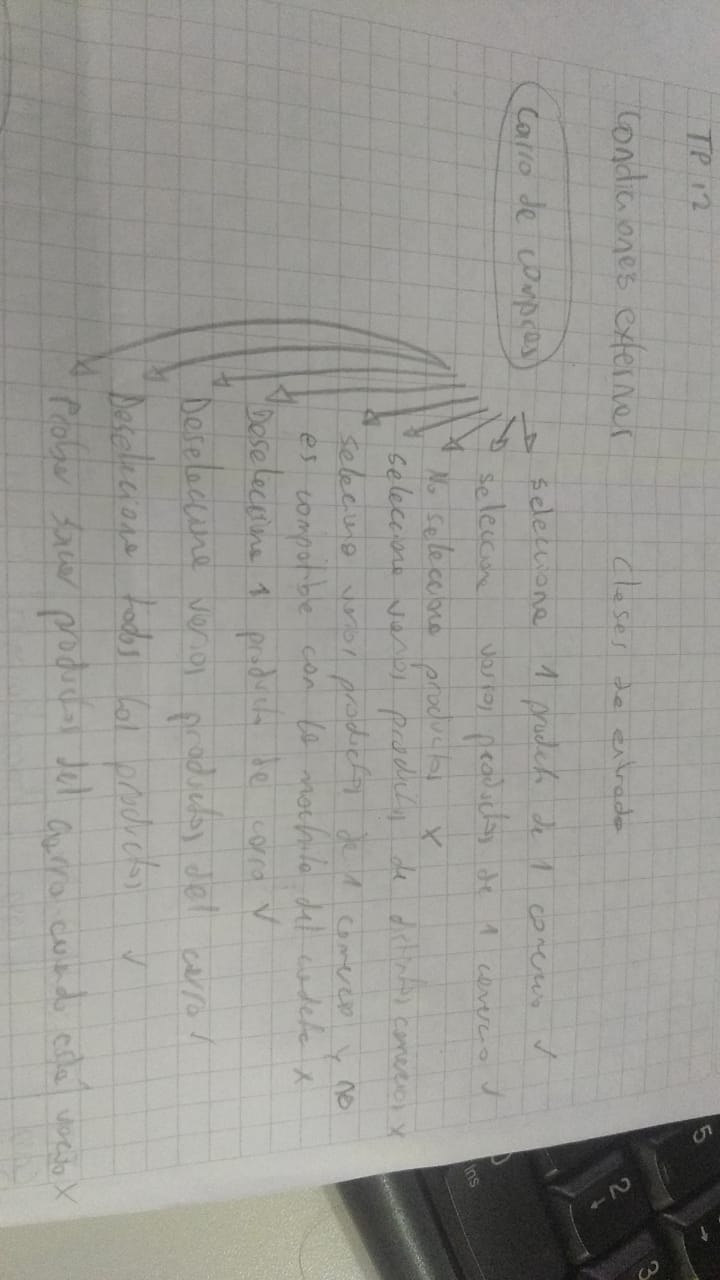 TP 12
Condiciones externas Clases de entrada
Carro de compras
Seleccione 1 producto de 1 comercio ✓
Seleccione varios productos de 1 comercio ✓
No seleccione productos x
Seleccione varios productos de distintos comercios x
Seleccione varios productos de 1 comercio y no
es compatible con la mochila del cadete x
Deseleccione 1 producto del carro ✓
Deseleccione varios productos del carro ✓
Deseleccione todos los productos ✓
Probar sacar productos del carro cuando está vacío x
5
2
3
Ins